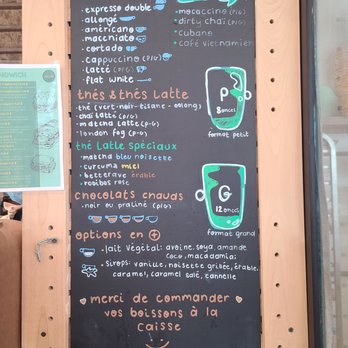 espresso double
allongé
américano
macchiato
cortado
cappuccino (P/G)
latté (P/G)
flat white
moccaccino (P/G)
dirty chaï (P/G)
cubano
café vietnamien
P
8 onces
format petit
thés & thés Latte
thé (vert-noir-tisane-oolong)
chaï latté (P/G)
matcha latte (P-G)
london fog (P-G)
thé Latte spéciaux
matcha bleu noisette
curcuma miel
betterave érable
rooibos rose
G
12 onces
format grand
chocolats chauds
noir ou praliné (P/G)
options en +
lait végétal: avoine, soya, amande
coco, macadamia;
sirops: vanille, noisette grillée, érable,
caramel, caramel salé, cannelle
merci de commander
vos boissons à la
caisse